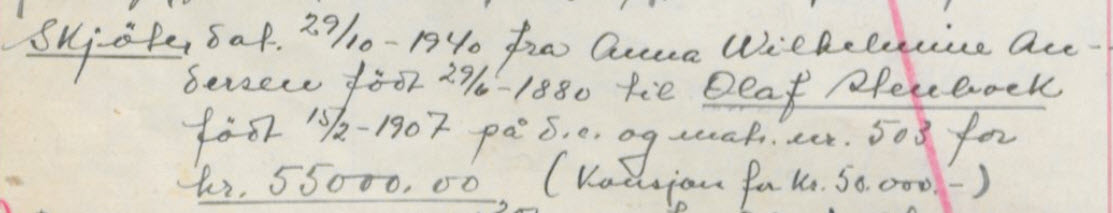 Skjøte, dat. 29/10-1940 fra Anna Wilhelmine An-
dersen født 29/6-1880 til Olaf Stenbock
født 15/2-1907 på d.e. og matr. nr. 503 for
kr. 55000.00 (Konsjon for kr. 50.000.-)